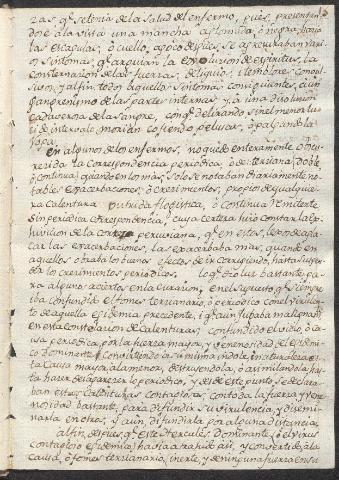 zas, qᵉ se tenia de la salud del enfermo, pues, presentan
dose a la vista una mancha aplomada, ò negra, bajo
las escapulas, ò cuello, à poco despues, se agravaban
sintomas, qᵉ arguian la de espiritus, la
consternacion de las fuerzas, deliquios, temblores, convul
sion, y alfin, todos aquellos sintomas consiguientes, à un
gangrenismo de las partes internas, y à una disolucion
cadaverosa de la sangre, conqᵉ delirando sin el menor lu
cido intervalo, morian cojiendo pelusas, ò palpando la
ropa.
En algunos de los enfermos, no quedò enteramente obscu
recida la correspondencia periodica, ò de terciana (doble
ò continua) quando en lo mas, solo se notaban diariamente no
tables exacerbaciones, ò crecimientos, propios de qualquie
ra calentura putrida flogistica, ò continua remitente
sin periodica correspondencia, cuya certeza hizo comtar la pro
hivicion de la corteza peruviana, qᵉ en estos, lejos de apla
car las exacerbaciones, las exacerbaba mas, quando en
aquellos obraba los buenos efectos de ir corrigiendo, hasta suspen
der los crecimientos periodicos. lo qᵉ dio luz bastante, pa
ra algunos aciertos en la curacion, en el supuesto qᵉ siempre
iba confundido el fomes tercianario, ò periodico con el virulen
to de aquella epidemia precedente, i qᵉ aun fumaba maligna
en esta constelacion de calenturas, confundido el vicio, ò ca
usa periodica, por la fuerza mayor, y venenosidad del epidemi
co dominante, y convirtiendo à si misma indole, ò naturaleza es
ta causa mayor, a la menor, destruyendola, ò asimilandola, has
ta hacer desaparecer lo periodico, y desde este punto, se declara
ban estas calenturas contagiosas, con toda la fuerza, y vene
nosidad bastante, para difundir su virulencia, y disemi
narla en otros, y aun difundirla por alguna distancia.
alfin, despues, qᵉ este Hercules dominante, ò el virus
contagioso epidemico, havia atrahido à si, y convertido à la
causa, ò fomes tercianario, inerte, y de ninguna fuerza en su